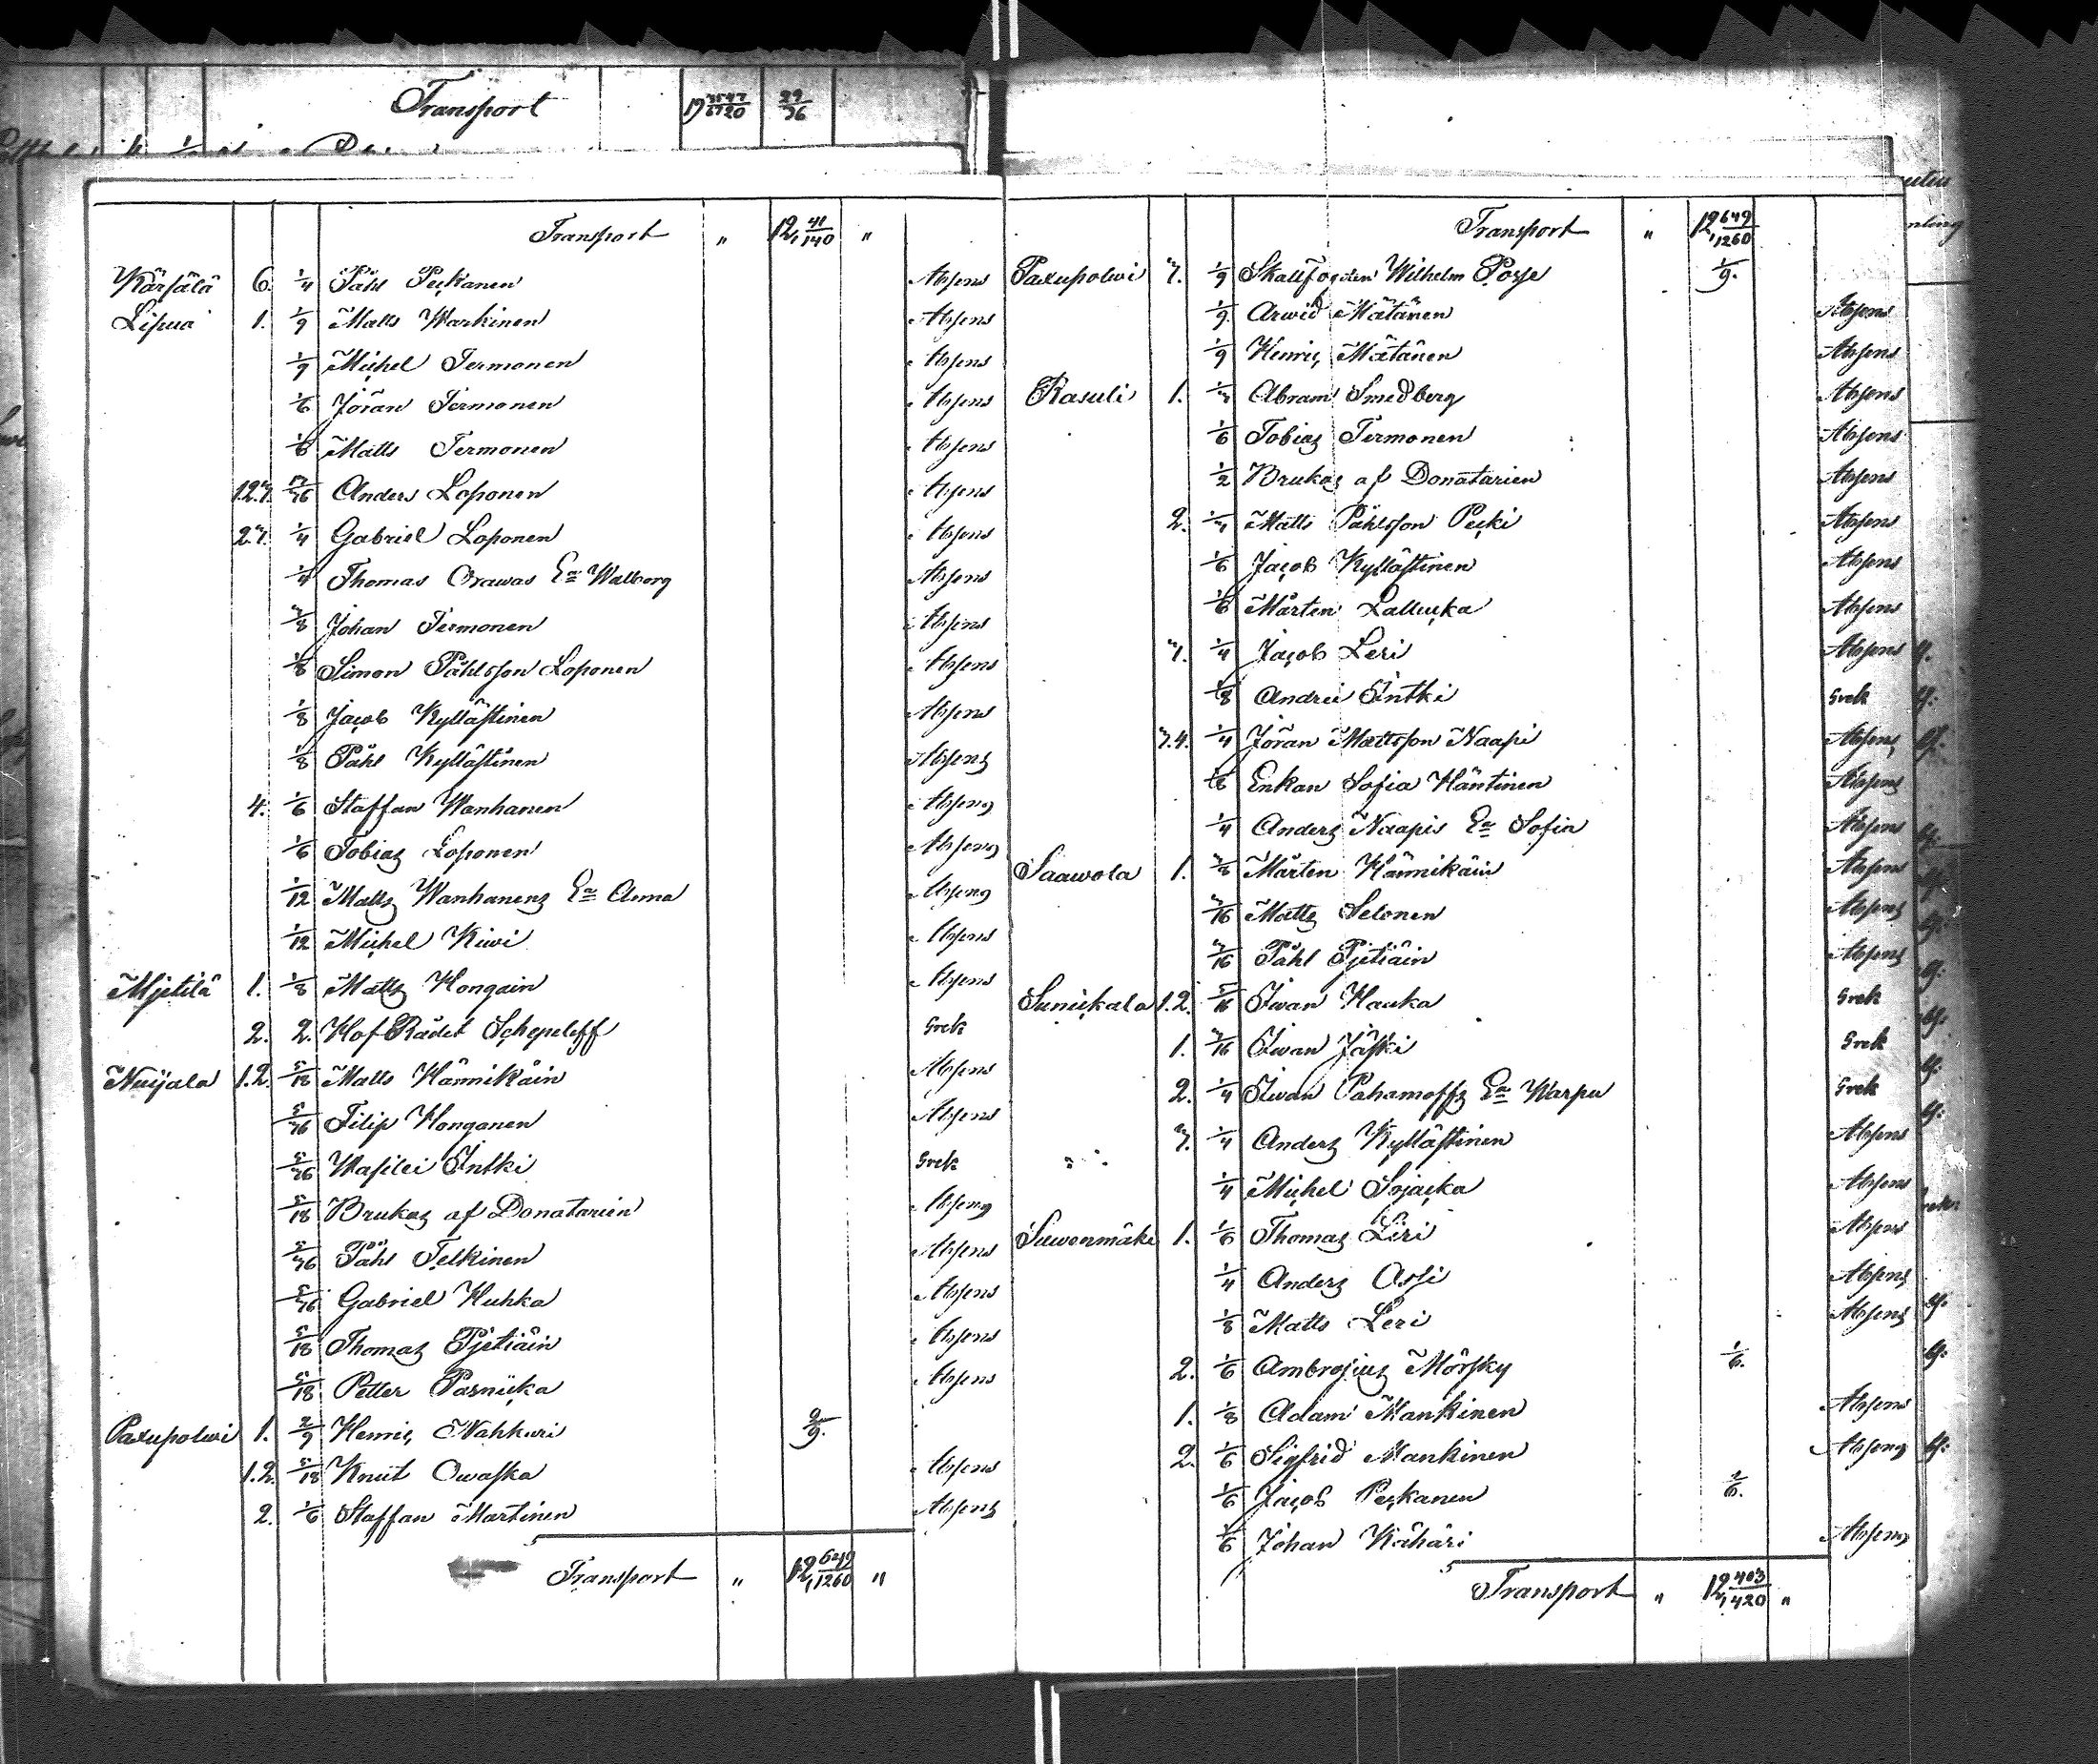 Transport 19 3547/6720 29/36
Transport " 12, 41/140 "
Kärsälä 6. 1/4 Påhl Peçkanen Absens
Lipua 1. 1/9 Matts Warkinen Absens
1/9 Miçhel Termonen Absens
1/6 Jöran Termonen Absens
1/6 Matts Termonen Absens
1.2.3. Anders Loponen Absens
2.3. 1/4 Gabriel Loponen Absens
1/4 Thomas Orawas Ea Walborg Absens
3/8 Johan Termonen Absens
1/8 Simon Påhlsson Loponen Absens
1/8 Jaçob Kyllästinen Absens
1/8 Påhl Kyllästinen Absens
4. 1/6 Staffan Wanhanen Absens
1/6 Tobias Loponen Absens
1/12 Matts Wanhanens Ea Anna Absens
1/12 Miçhel Kiwi Absens
Mjetilä 1. 1/8 Matts Hongain Absens
2. 2. Hof Rådet Sçhepeleff Grek
Nuijala 1.2. 5/18 Matts Hännikäin Absens
5/36 Filip Honganen Absens
5/36 Wasilei Intki Grek
5/18 Brukas af Donatarien Absens
5/36 Påhl Telkinen Absens
5/36 Gabriel Huhka Absens
5/18 Thomas Pjetiäin Absens
5/18 Petter Parniçka Absens
Paxupolwi 1. 2/9 Henriç Nahkuri 2/9.
1.2. 5/18 Knut Owaska Absens
2. 1/6 Staffan Martinen Absens
Transport " 12, 649/1260 "
Transport " 12, 649/1260
Paxupolwi 3. 1/9 Skallfogden Wilhelm Posse 1/9.
1/9 Arwid Mätänen Absens
1/9 Henriç Mätänen Absens
Rasuli 1. 1/3 Abram Smedberg Absens
1/6 Tobias Termonen Absens
1/2 Brukas af Donatarien Absens
2. Matts Påhlsson Peçki Absens
1/6 Jaçob Kyllästinen Absens
1/6 Mårten Lalluçka Absens
3. 1/4 Jaçob Leri Absens
1/8 Andrei Intki Grek
3.4. 1/4 Jöran Mattsson Naapi Absens
Enkan Sofia Häntinen Absens
1/4 Anders Naapis Ea Sofia Absens
Saawola 1. 3/8 Mårten Hännikäin Absens
3/16 Matts Selonen Absens
3/16 Påhl Pjetiäin Absens
Suniçkala 1.2. 5/16 Iwan Hauka Grek
1. 3/16 Iwan Jäski Grek
2. 1/4 Iwan Pahamoffs Ea Warpu Grek
3. 1/4 Anders Kyllästinen Absens
1/4 Miçhel Sojaçka Absens
Suwenmäki 1. 1/6 Thomas Leri Absens
1/4 Anders Assi Absens
1/8 Matts Leri Absens
2. 1/6 Ambrosius Mörsky 1/6.
1. 1/8 Adam Mankinen Absens
2. 1/6 Sigfrid Mankinen Absens
1/6 Jaçob Peçkanen 1/6.
1/6 Johan Kähäri Absens
Transport " 12, 403/420 "